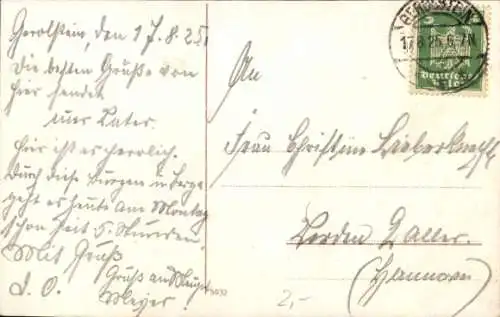 Gerolstein, den 17.8.25.
Die besten Grüße von
hier sendet
euer Vater.
Hier ist es herrlich.
Durch diese Burgen u. Berge
geht es heute am Montag
schon seit 5 Stunden.
Mit Gruß
Gruß an
Meyer.
An
Frau Christine Lieberknecht
Hannover
2,-
GEROLSTEIN
17.8.25.6-7N
Deutsches
Reich